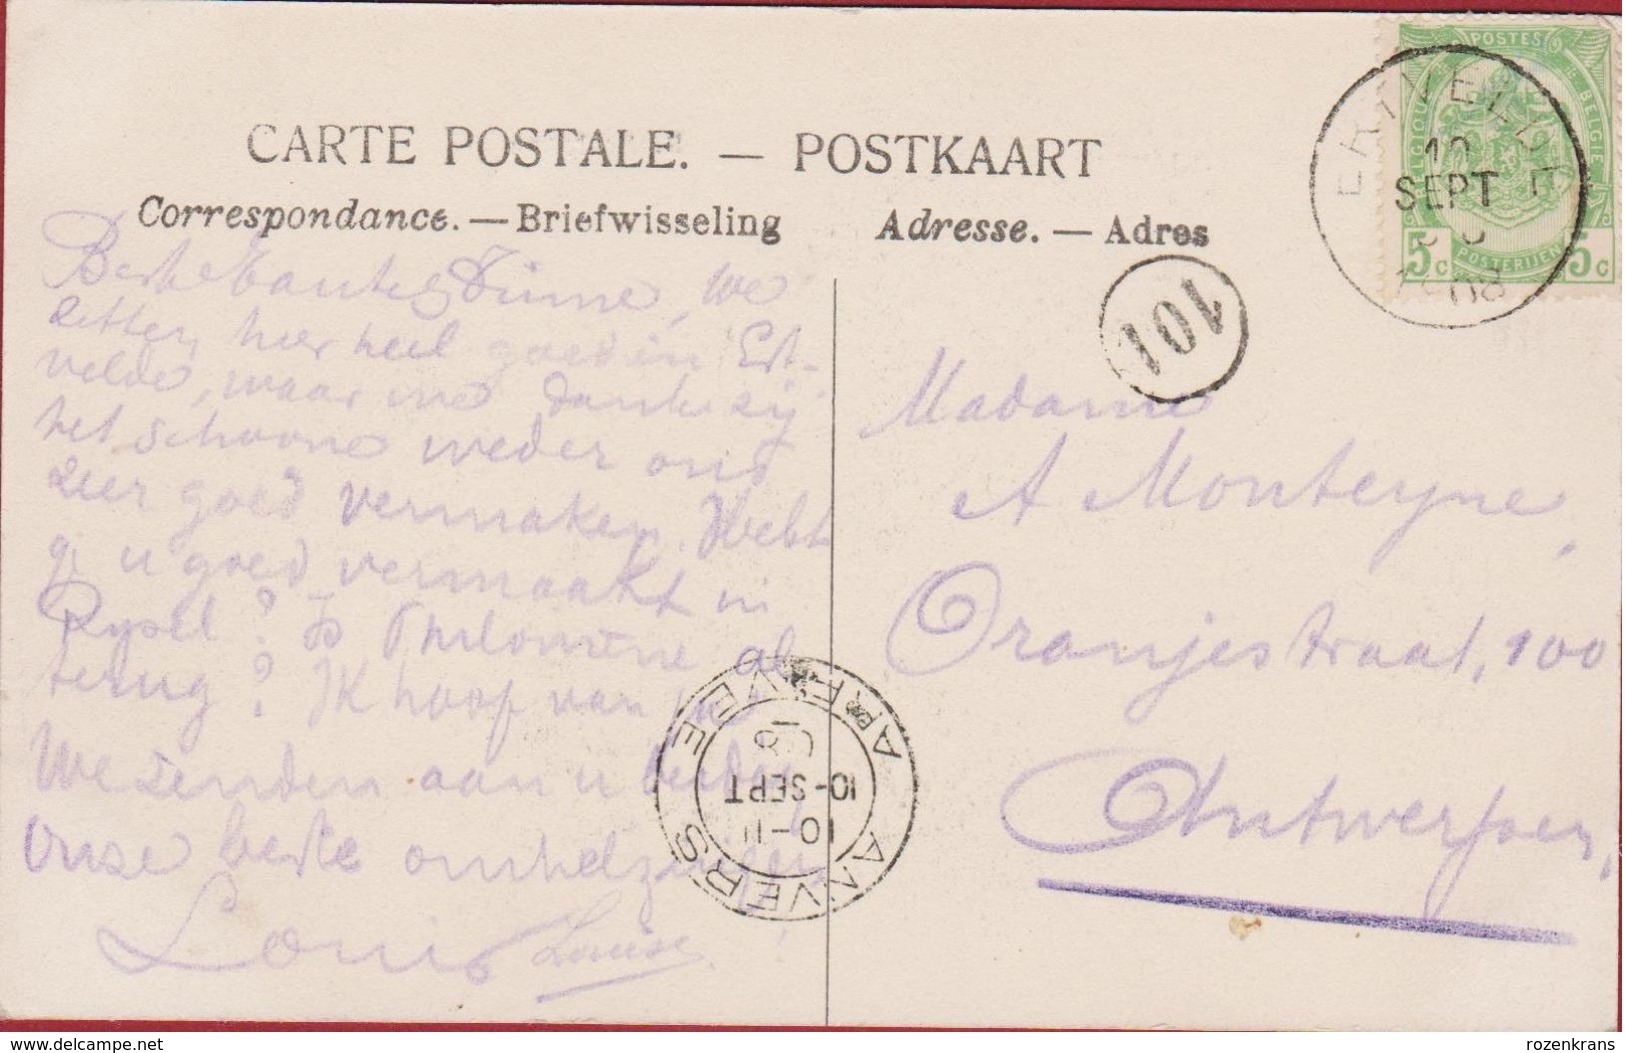 CARTE POSTALE. — POSTKAART
Correspondance. — Briefwisseling
Adresse. — Adres
POSTES
BELGIQUE
BELGIE
5c
POSTERIJEN
5c
ERTVELDE
10
SEPT
1908
101
Beste Tante, we
zitten hier heel goed in Ert-
velde, waar me dank zij
het schoone weder ons
zeer goed vermaken. Hebt
ge u goed vermaakt in
Rysel? Is Philomène al
terug? Ik hoop van ja
We zenden aan u beiden
Onze beste omhelzingen
Louis Louise
Madame
A Monteyne,
Oranjestraat, 100
Antwerpen,
ANVERS
ARRIVEE
10-11
10-SEPT
08
www.delcampe.net
rozenkrans